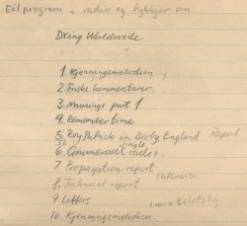 Eit program i radio eg hyggjer om
DXing Worldwide
1. Kjenningsmelodien...
2. Friske kommentarer.
3. Musings part 1
4. Remember time
5. Roy Patrick in Derby, England Report
6. Commercial radio. single
7. Propagation report
8. Technical report
9. Letters
10. Kjenningsmelodien.